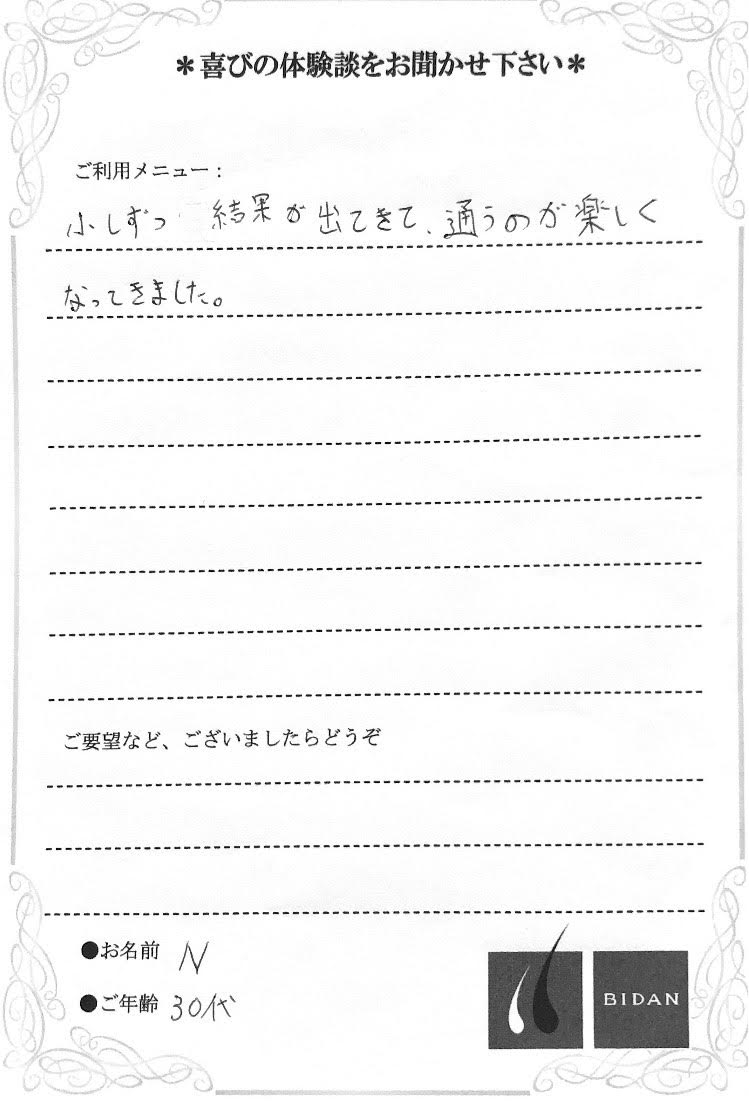 ＊喜びの体験談をお聞かせ下さい＊
ご利用メニュー：
小しずつ 結果が出てきて、通うのが楽しく
なってきました。
ご要望など、ございましたらどうぞ
●お名前 N
●ご年齢 30代
BIDAN